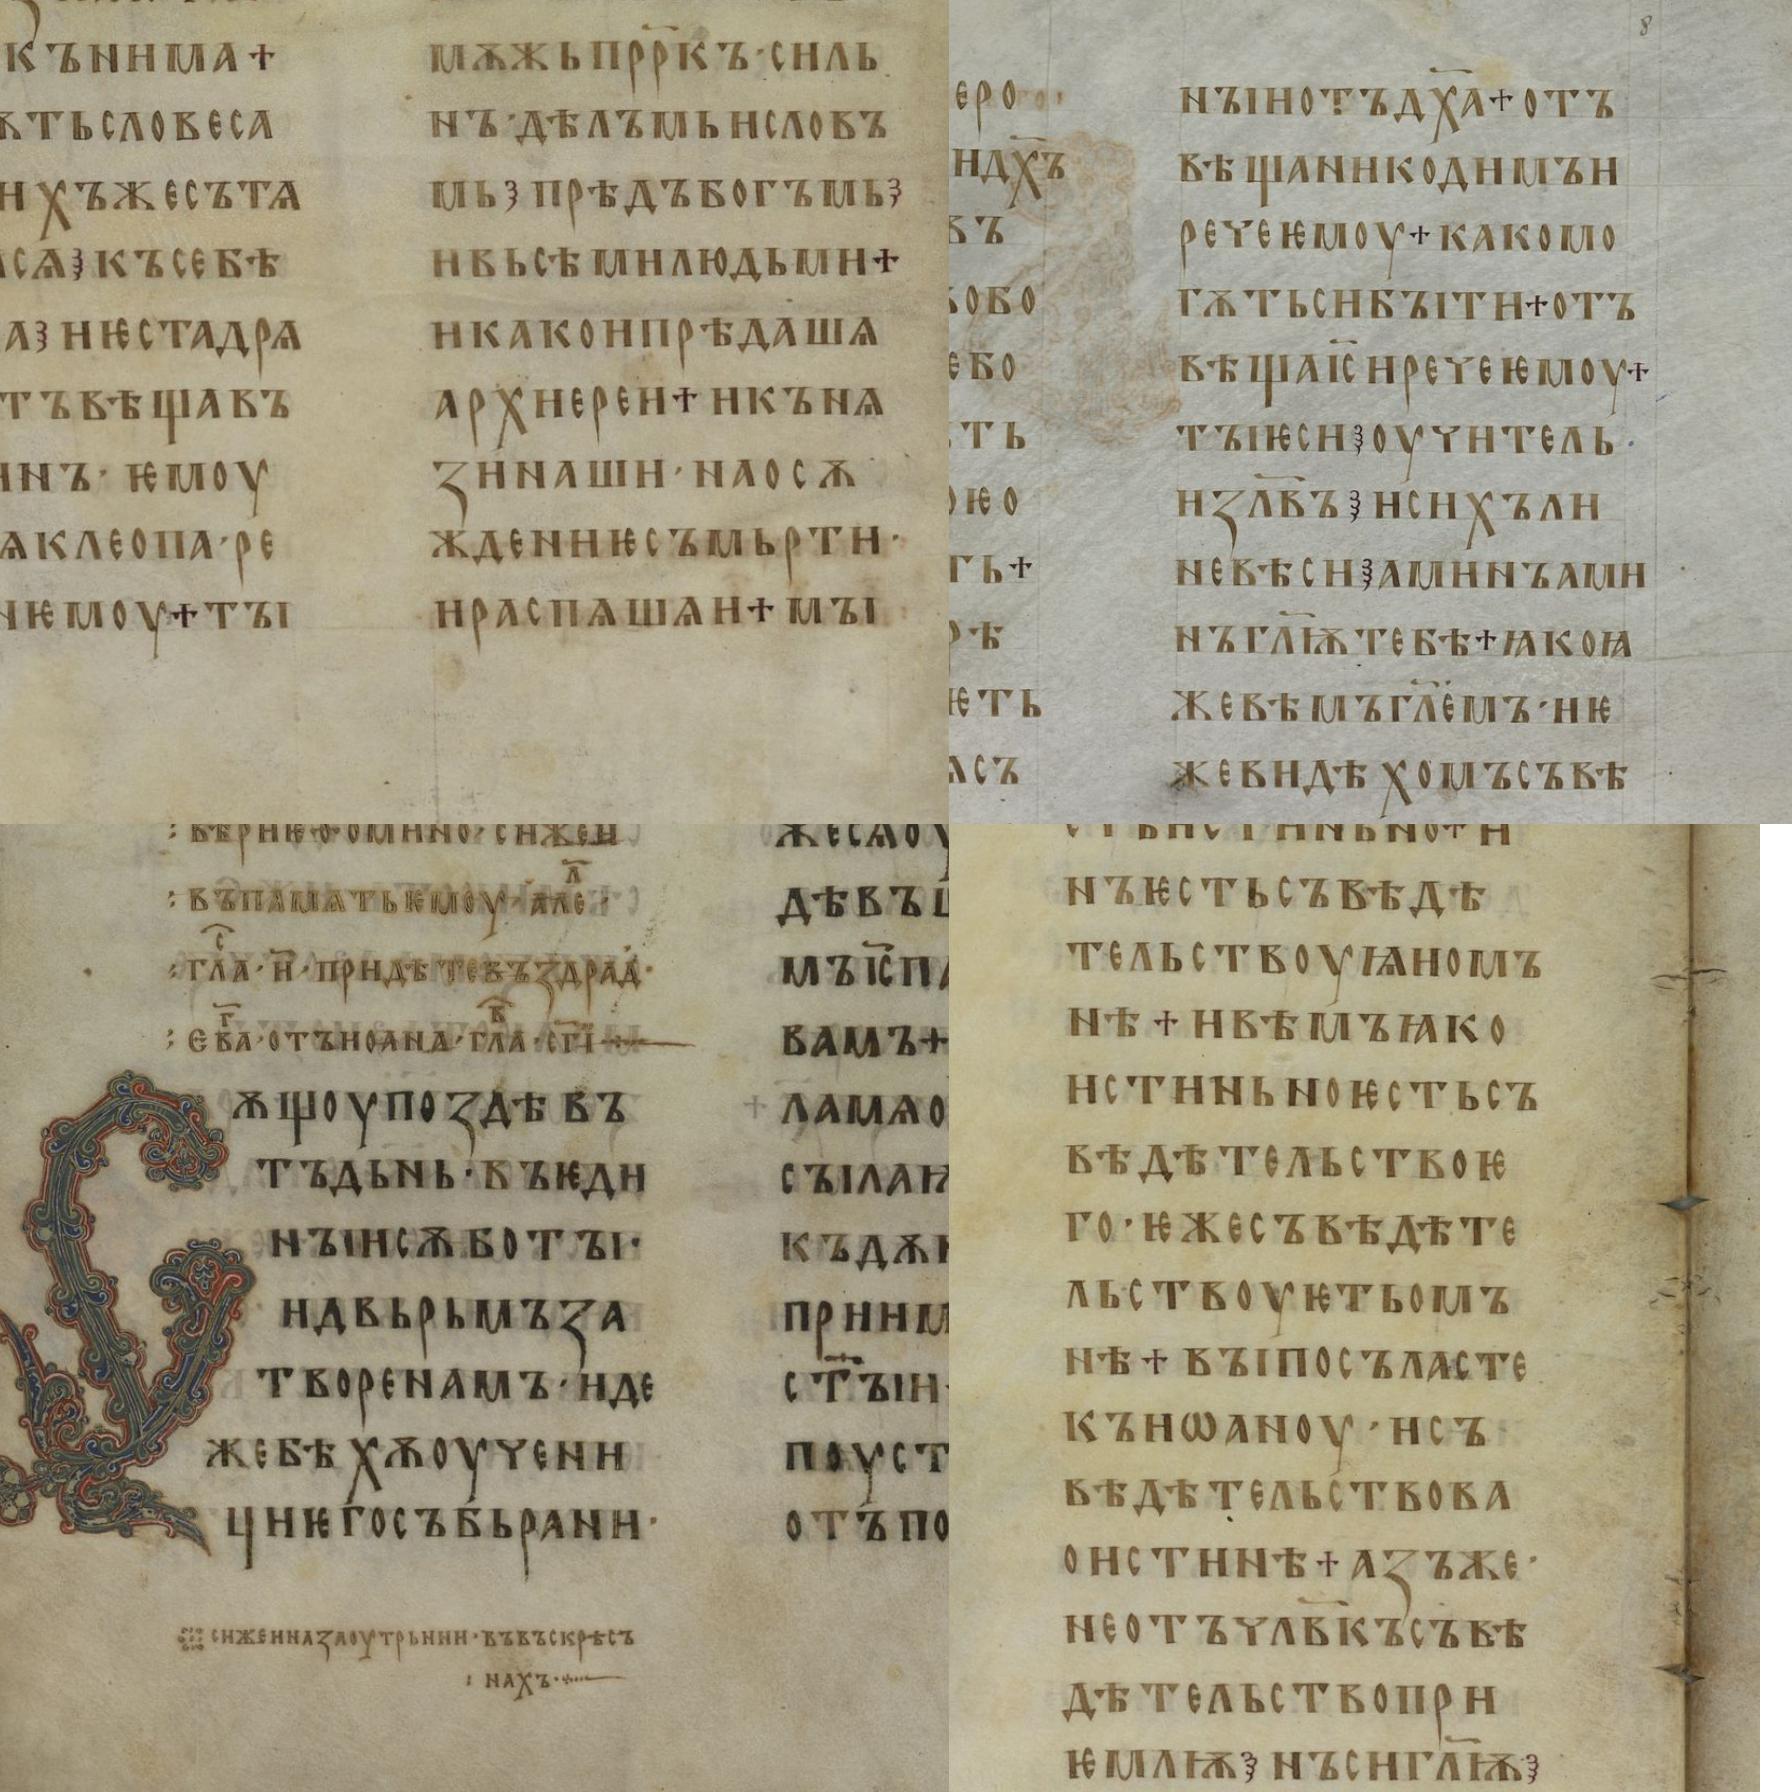 къ нима +
ть словеса
ихъ же сътѧ
сѧ ꙁ къ себѣ
а ꙁ и ѥста дрѧ
тъвѣщавъ
инъ · ѥмоу
ѧ клеопа · ре
ѥмоу + тꙑ
мѫжь пррк҃ъ · силь
нъ · дѣлъмь и словъ
мь ꙁ прѣдъ богъмь ꙁ
и вьсѣми людьми +
и како и прѣдашѧ
архиереи + и кънѧ
ꙁи наши · на осѫ
ждениѥ съмьрти ·
и распѧшѧ и + мꙑ
8
еро
и дх҃ъ
въ
ово
ебо
ть
ою о
гь +
рѣ
ѥть
съ
нꙑи отъ дх҃а + отъ
вѣща никодимъ и
рече ѥмоу + како мо
гѫть си бꙑти + отъ
вѣща іс҃ и рече ѥмоу +
тꙑ ѥси ꙁ оучитель ·
иꙁл҃въ ꙁ и сихъ ли
не вѣси ꙁ аминъ ами
нъ гл҃ѭ тебѣ + ꙗко ꙗ
же вѣмъ гл҃емъ · и ѥ
же видѣхомъ съвѣ
въ памѧть ѥмоу · але ·
гл҃а · и҃ · приде тевъ ꙁдрад ·
ев҃а · отъ иоана · гл҃а · сг҃і
ѫщоу поꙁдѣ въ
тъ дьнь · въ ѥди
нꙑи сѫботꙑ ·
и двьрьмъ ꙁа
творенамъ · иде
же бѣхѫ оучени
ци ѥго събьрани ·
си же и на ꙁаоутрьнии · въ въскрьсъ
нахъ ·
же сѧ оу
дѣвъш
мъ іс҃ па
вамъ +
ла мѧ о
сꙑлаѭ
къ дѫн
приим
ст҃ꙑи ·
поуст
отъпо
нъ ѥсть съвѣдѣ
тельствоуѩ о мъ
нѣ + и вѣмъ ꙗко
истиньно ѥсть съ
вѣдѣтельство ѥ
го · ѥже съвѣдѣте
льствоуѥть о мъ
нѣ + вꙑ посъласте
къ иѡаноу · и съ
вѣдѣтельствова
о истинѣ + аꙁъ же ·
не отъ чл҃вкъ съвѣ
дѣтельство при
ѥмлѭ ꙁ нъ си гл҃ѭ ꙁ